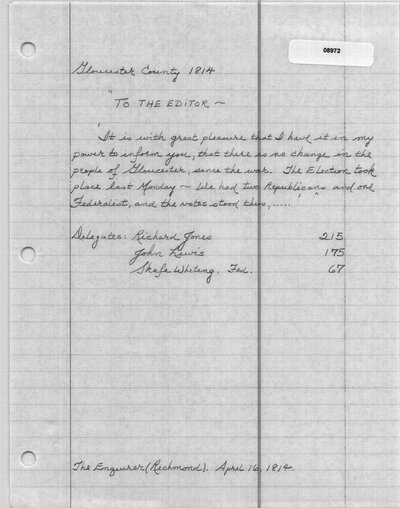 08972
Gloucester County 1814
"TO THE EDITOR ~
'It is with great pleasure that I have it in my
power to inform you, that there is no change in the
people of Gloucester, since the war. The Election took
place last Monday ~ We had two Republicans and one
Federalist, and the votes stood thus,.....'"
Delegates: Richard Jones 215
John Lewis 175
Whiting, Fed. 67
The Enquirer (Richmond). April 16, 1814.